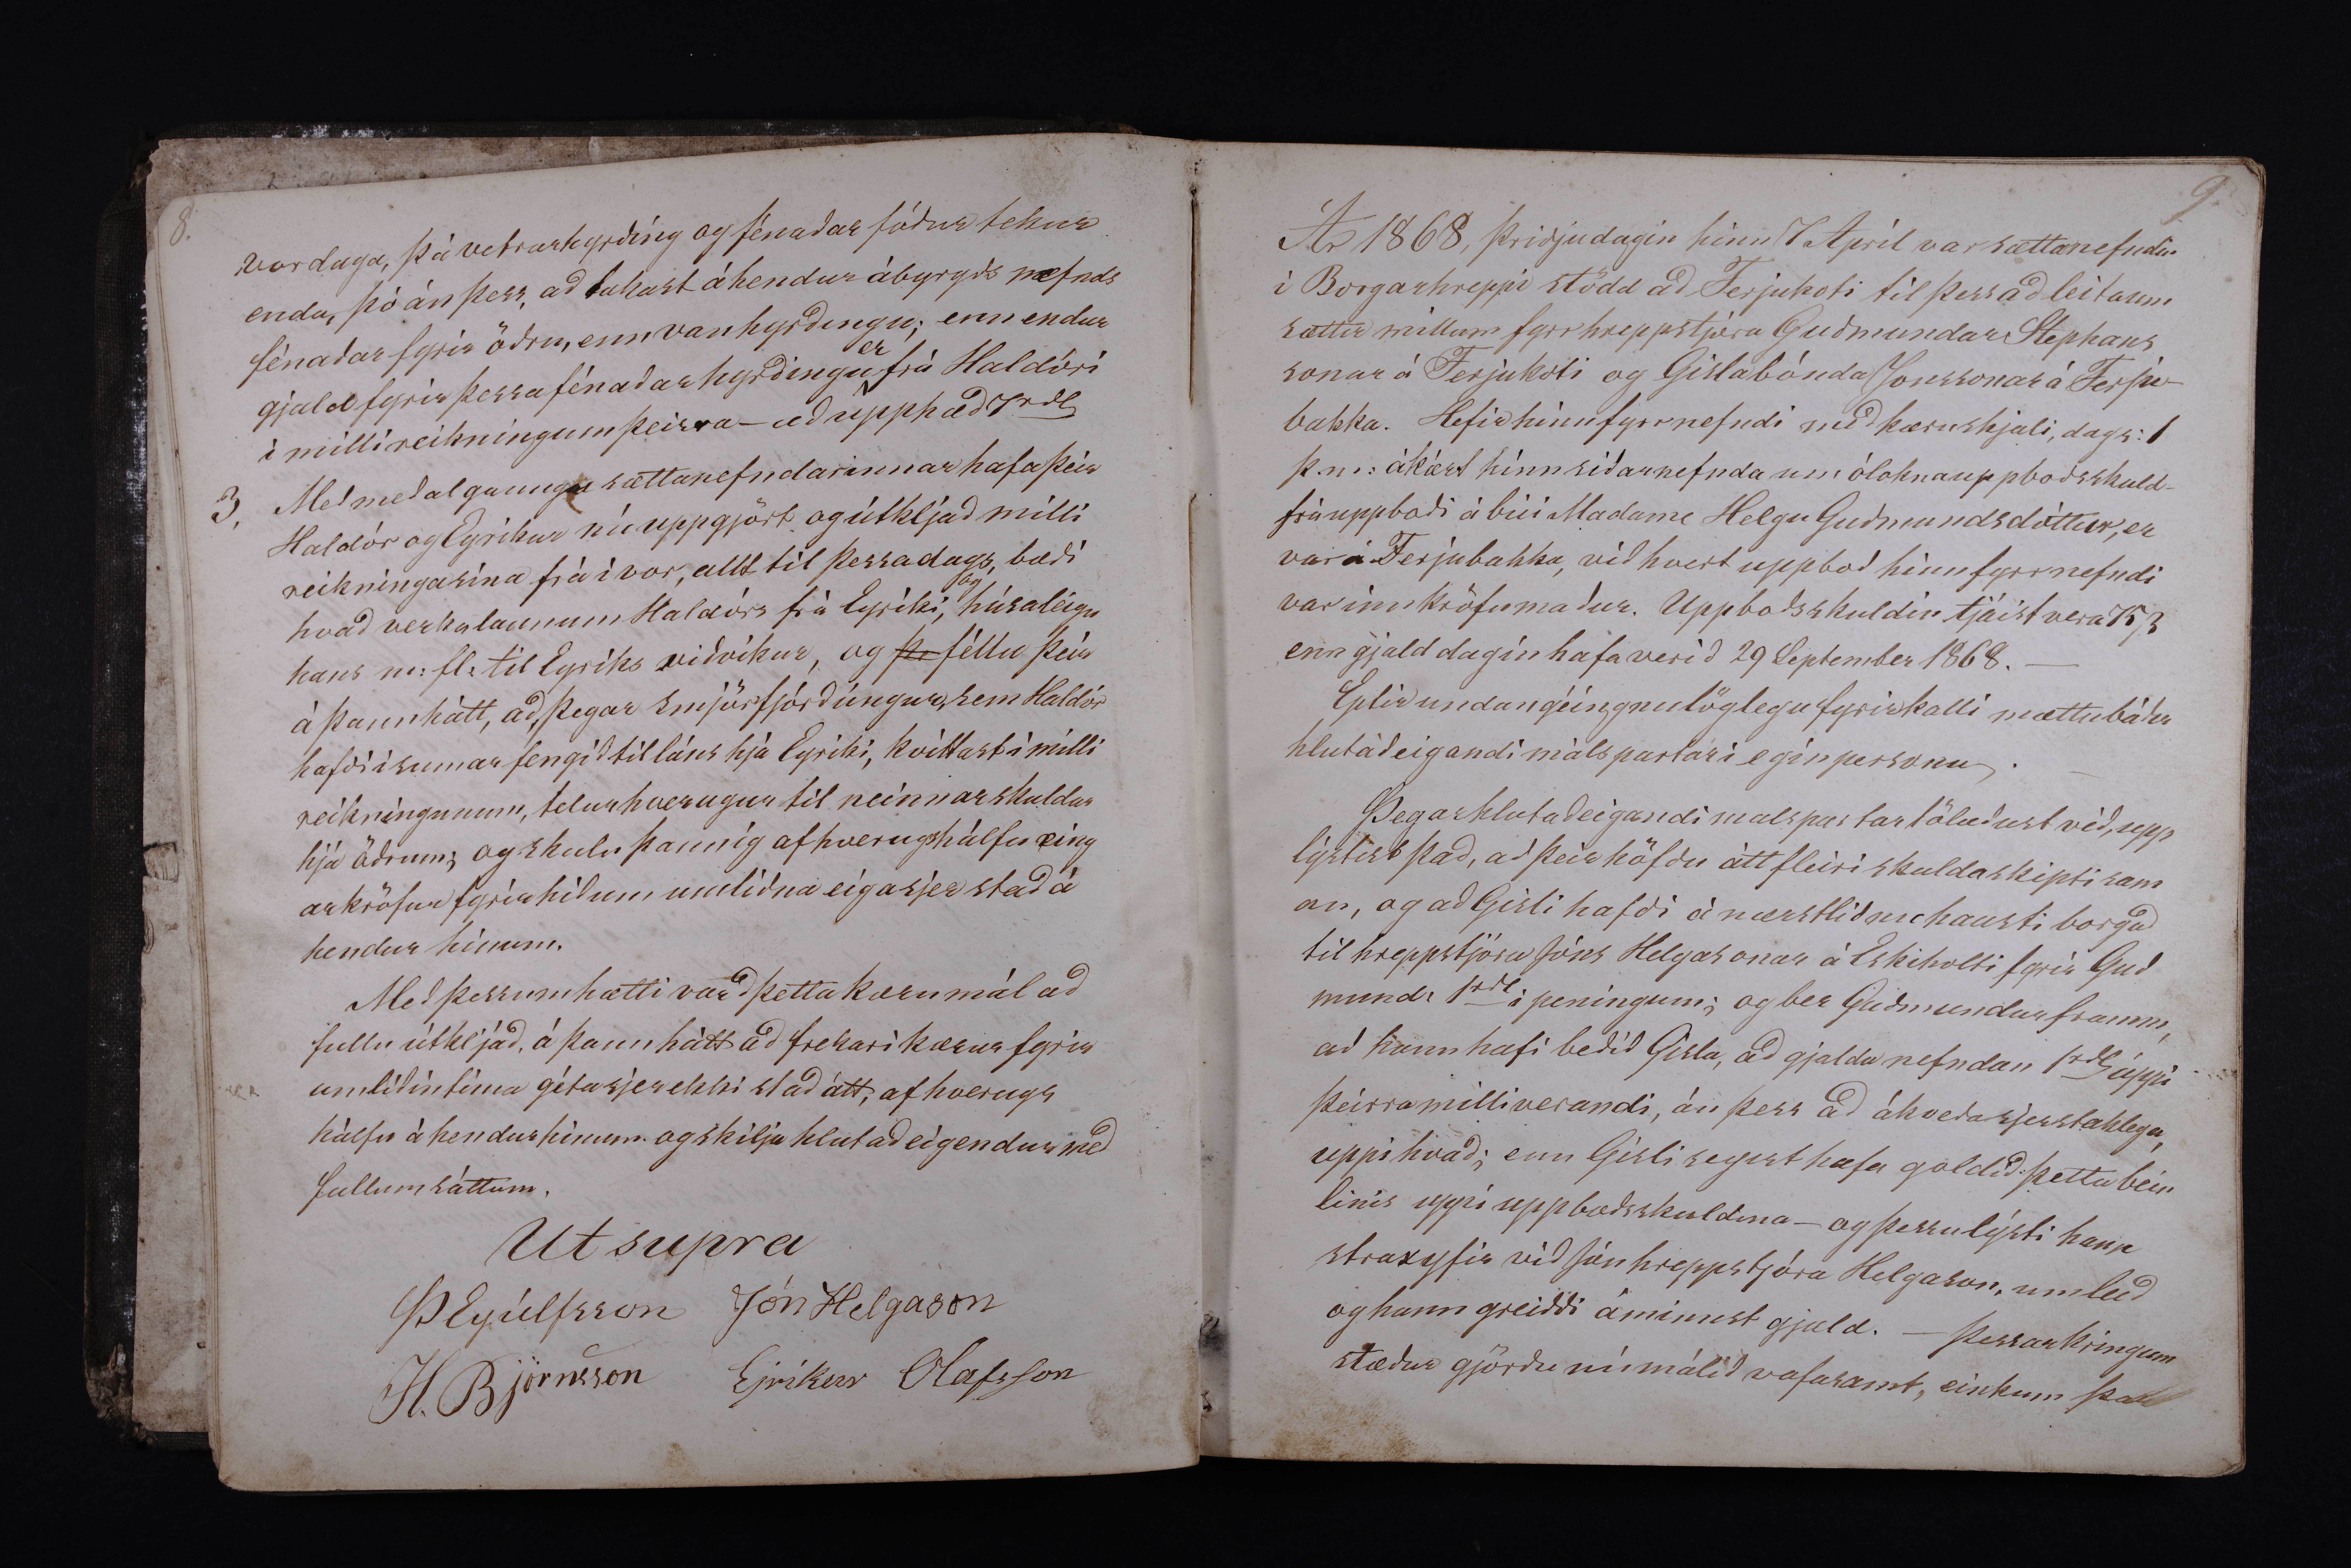 8.
vordaga, þá vetrarhyrðíng og fénaðar fóður tekur
enda, þó án þess, að takast áhendur ábyrgð nefnds
fénaðar fyrir öðru, enn vanhyrðingu; enn endur
gjald fyrir þessa fénaðarhyrðingu er frá Haldóri
í milli reikningum þeirra – að upphæð 7 rdl
3. Með meðalgaungu sættanefndarinnar hafa þeir
Haldór og Eyríkur nú uppgjört og útkljáð milli
reikninga sína frá í vor, allt til þessa dags, bæði
hvað verkalaunum Haldórs frá Eyríki, og húsaleigu
hans m: fl: til Eyríks viðvíkur, og þr féllu þeir
á þann hátt, að, þegar smjörfjórðúngur, sem Haldór
hafði í sumar fengið til láns hjá Eyríki, kvittast í milli
reikníngunum, telur hverugur til neinnar skuldar
hjá öðrum; og skulu þannig af hverugs hálfu eing
ar kröfur fyrir hið umliðna eiga sjer stað á
hendur hinum.
Með þessum hætti varð þetta kærumál að
fullu útkljáð, á þann hátt að frekari kærur fyrir
umliðin tíma géta sjer ekki stað átt, af hverugs
hálfu á hendur hinum og skilja hlutaðeigendur með
fullum sáttum.
Ut supra
Þ Eyúlfsson Jón Helgason
H. Björnsson Ejríkur Olafsson
9.
Ár 1868, þriðjudagin hinn 7 Apríl var sættanefndin
í Borgarhreppi stödd að Ferjukoti til þess að leita um
sættir millum fyrr hreppstjóra Guðmundar Stephans
sonar á Ferjukoti og Gísla bónda Jónssonar á Ferju-
bakka. Hefir hinn fyrrnefndi með kæruskjali, dags: 1
þ.m: ákært hinn síðarnefnda um ólokna uppboðsskuld
frá uppboði á búi Madame Helgu Guðmundsdóttur, er
var á Ferjubakka, við hvert uppboð hinn fyrrnefndi
var innköfumaður. Uppboðsskuldin tjáist vera 75 ß
enn gjalddagin hafa verið 29 September 1868. —
Eptir undangéingnu löglegu fyrirkalli mættu báðir
hlutaðeigandi málspartar í eginpersonu.
Þegar hlutaðeigandi malspartar töluðust við, upp
lýstist það, að þeir höfðu átt fleiri skuldaskipti sam
an, og að Gísli hafði á næstliðnu hausti borgað
til hreppstjóra Jóns Helgasonar á Eskiholti fyrir Guð
mund: 1 rdl í peningum; og ber Guðmundur framm,
að hann hafi beðið Gísla, að gjalda nefndan 1 rdl uppí
þeirra milliverandi, án þess að ákveða sjerstaklega,
uppí hvað; enn Gísli segist hafa goldið þetta bein
línis uppí uppboðsskuldina – og þessu lýsti hann
strax yfir við Jón hreppstjóra Helgason, um leið
og hann greiddi áminnst gjald. — Þessar kringum
stæður gjörðu nú málið vafasamt, einkum þar